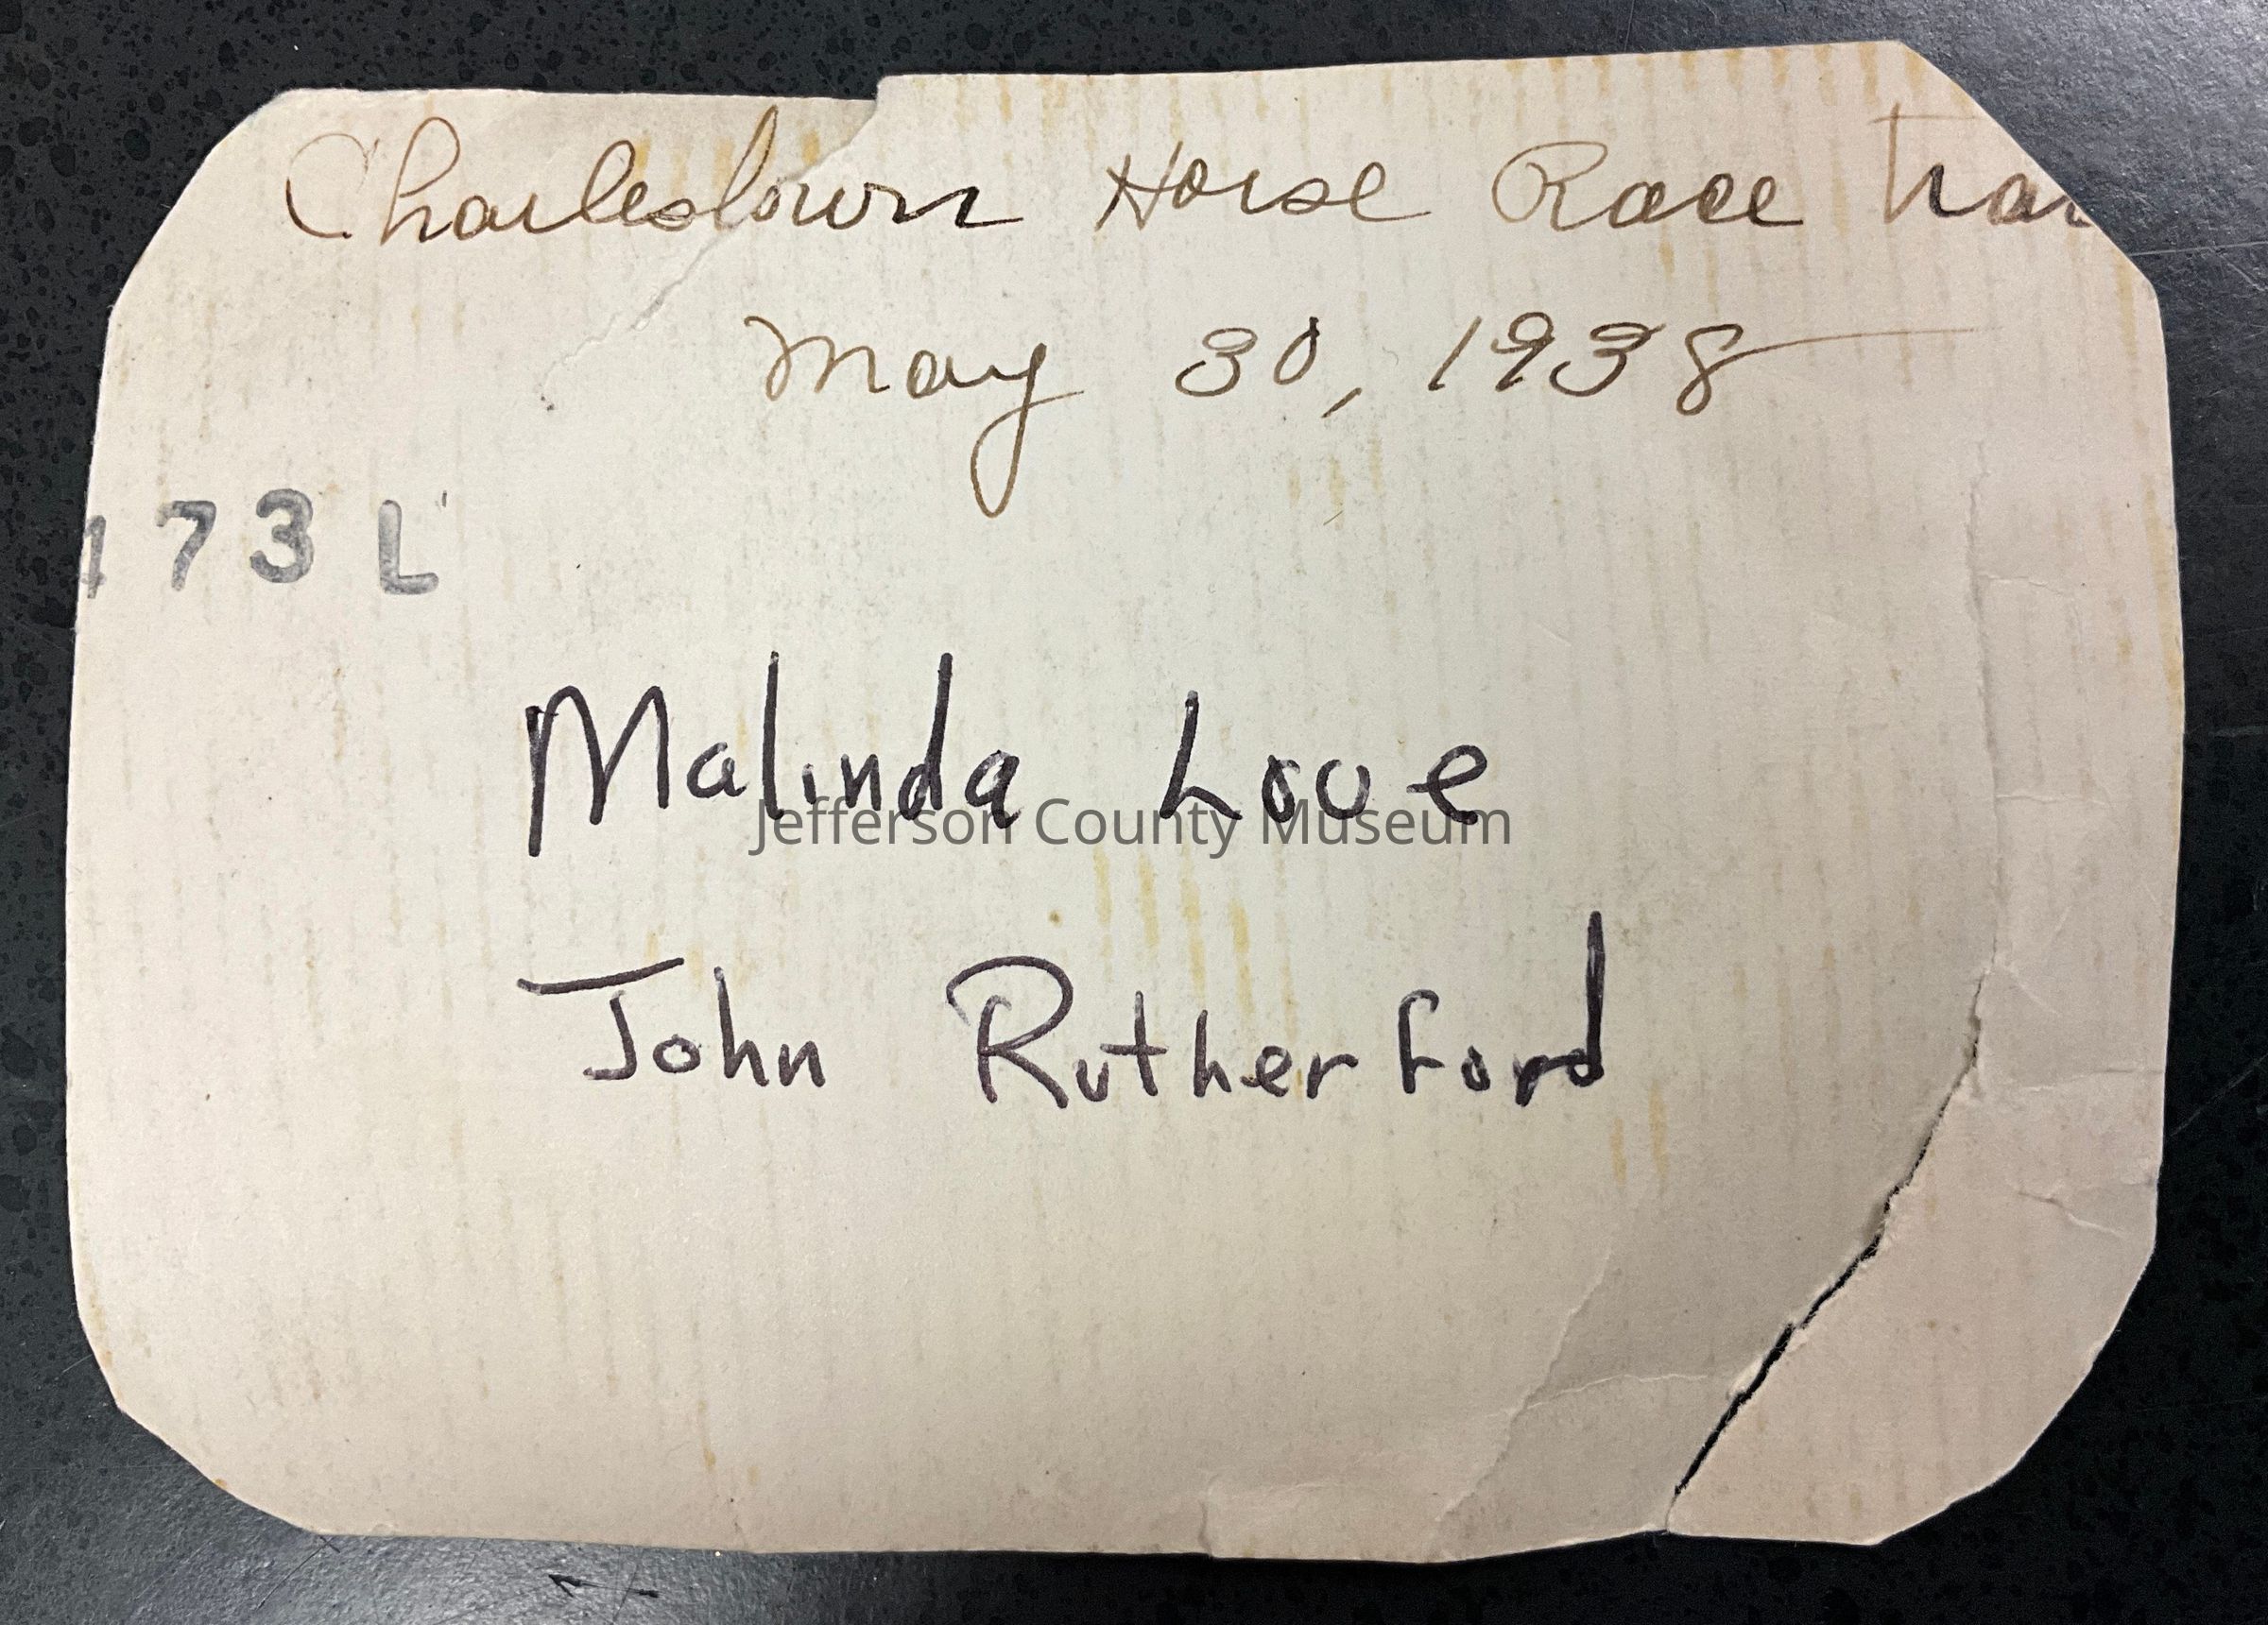 Charlestown Horse Race Trac
May 30, 1938
173 L
Malinda Love
Jefferson County Museum
John Rutherford